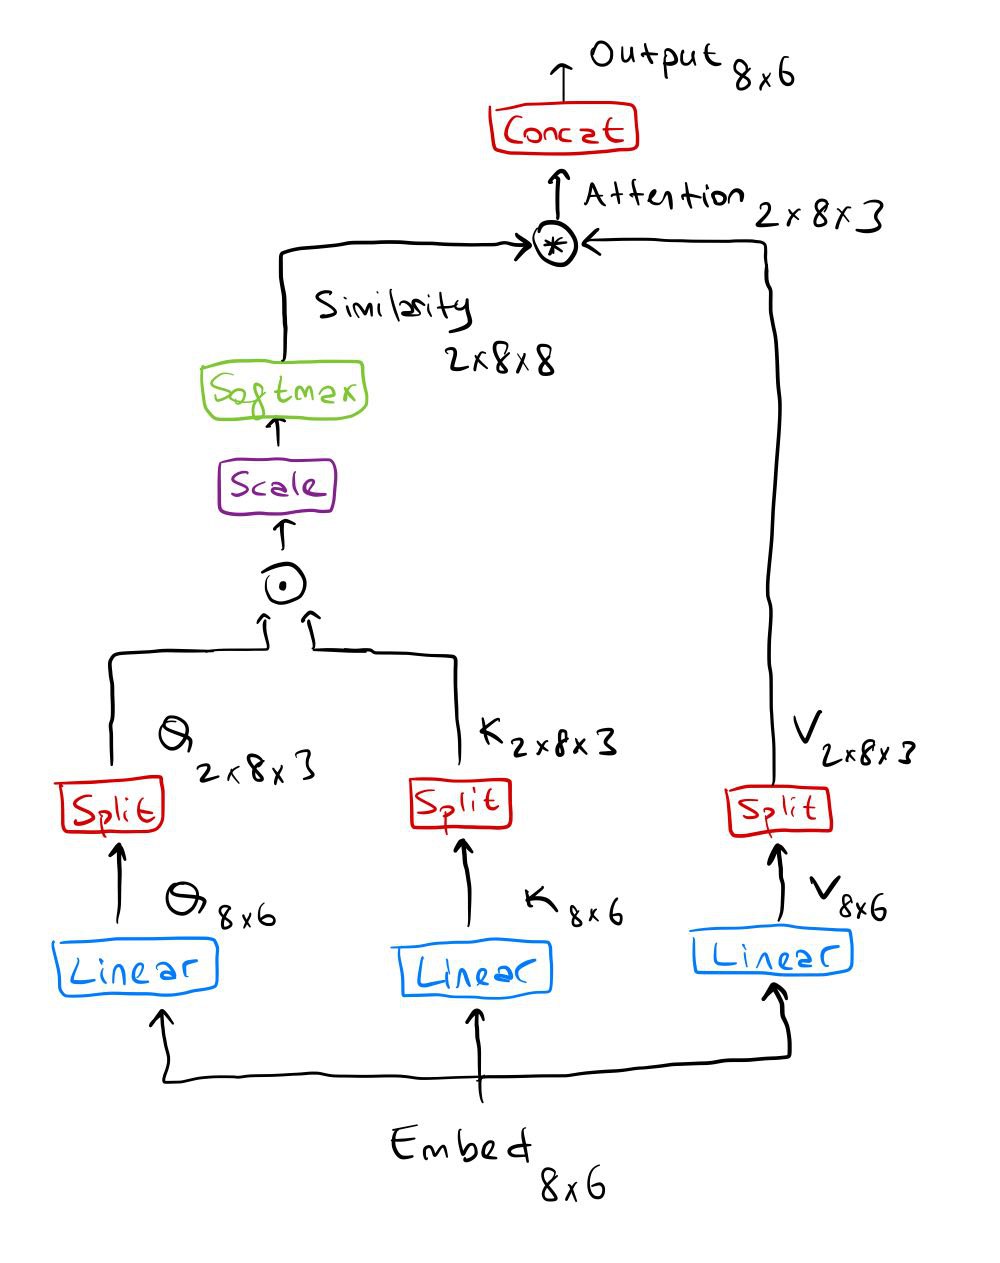 Output 8x6
Concat
Attention 2x8x3
*
Similarity
2x8x8
Softmax
Scale
Q 2x8x3
K 2x8x3
V 2x8x3
Split
Split
Split
Q 8x6
K 8x6
V 8x6
Linear
Linear
Linear
Embed 8x6